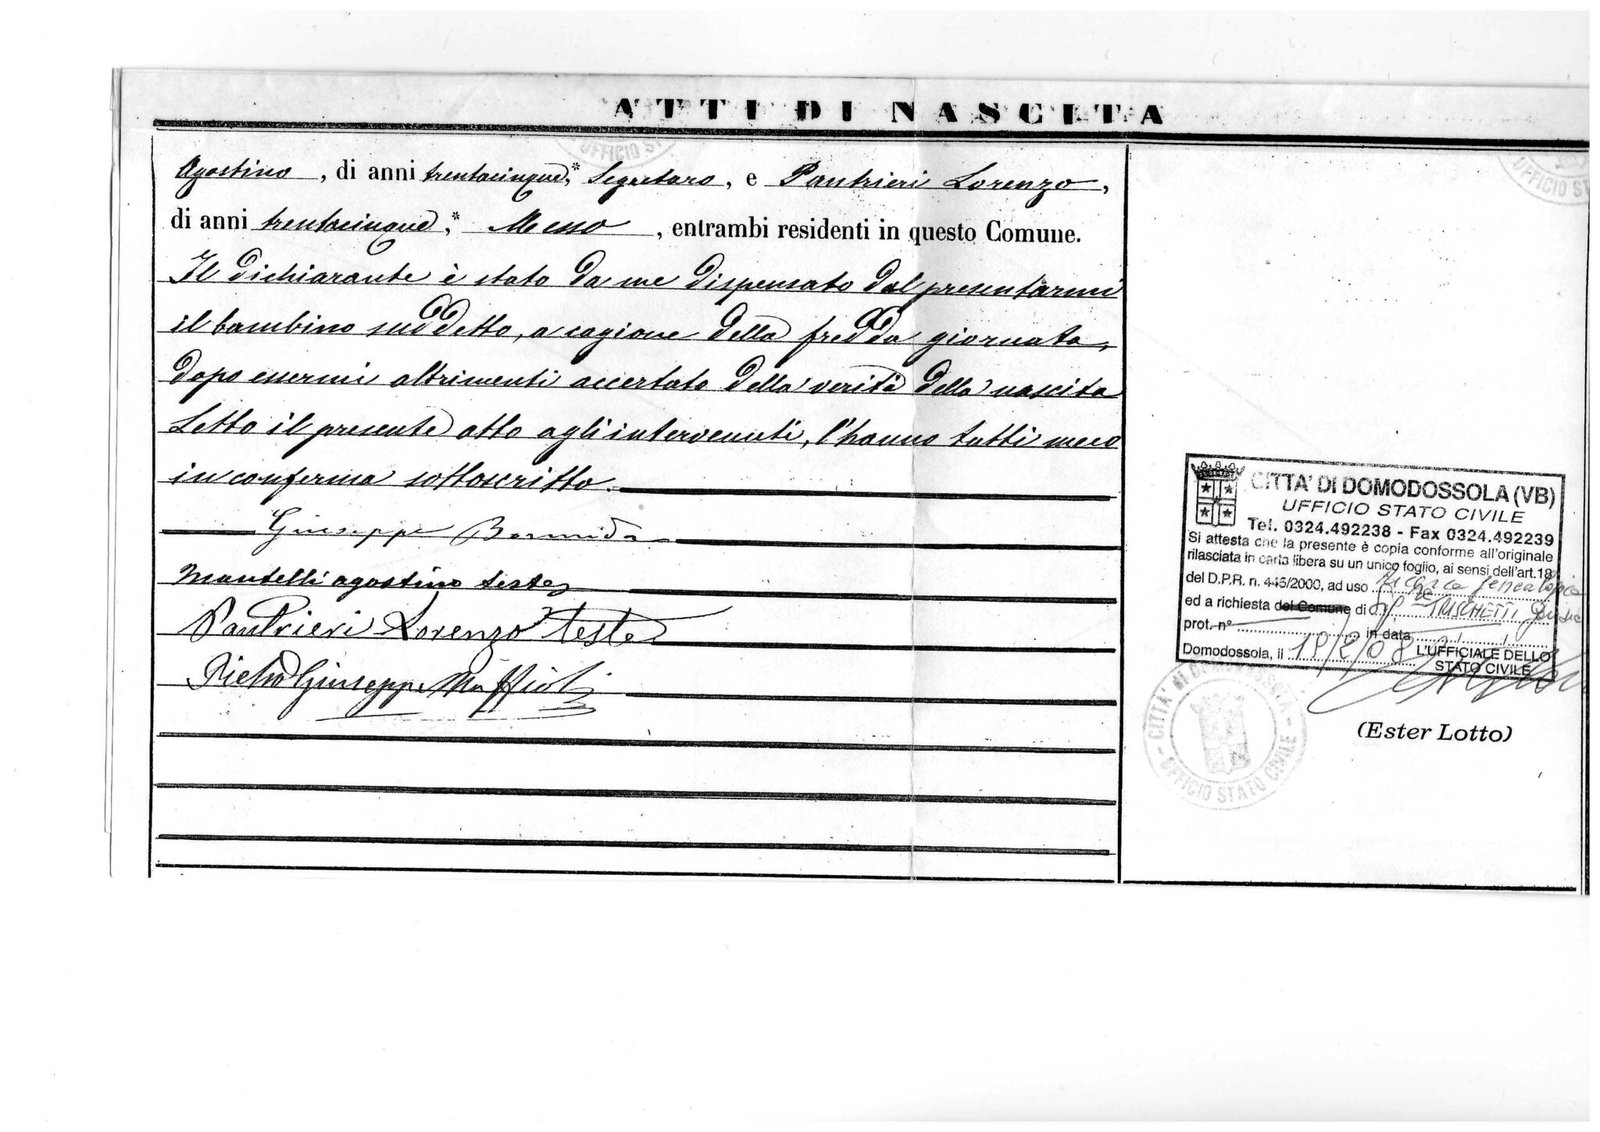 ATTI DI NASCITA
Agostino, di anni trentacinque,* Segretaro, e Pantrieri Lorenzo,
di anni trentacinque,* Messo, entrambi residenti in questo Comune.
Il dichiarante è stato da me dispensato dal presentarmi
il bambino suddetto, a cagione della fredda giornata,
dopo essermi altrimenti accertato della verità della nascita
Letto il presente atto agli intervenuti, l'hanno tutti meco
in conferma sottoscritto.
Giuseppe
Mantelli agostino teste
Pantrieri Lorenzo teste
Pietro Giuseppe Maffioli
UFFICIO STA
UFFICIO ST
CITTA' DI DOMODOSSOLA (VB)
UFFICIO STATO CIVILE
Tel. 0324.492238 - Fax 0324.492239
Si attesta che la presente è copia conforme all'originale
rilasciata in carta libera su un unico foglio, ai sensi dell'art.18
del D.P.R. n. 445/2000, ad uso ricerca genealogica
ed a richiesta del Comune di
prot. n° in data
Domodossola, il 18/2/08 L'UFFICIALE DELLO
STATO CIVILE
(Ester Lotto)
CITTA' DI DOMODOSSOLA - UFFICIO STATO CIVILE -